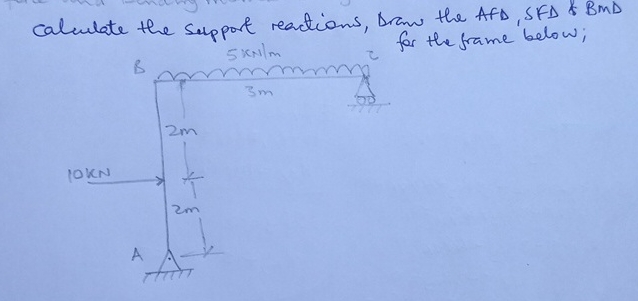 calculate the support reactions, Draw the AFD, SFD & BMD
for the frame below;
5KN/m
B
C
3m
2m
10KN
2m
A